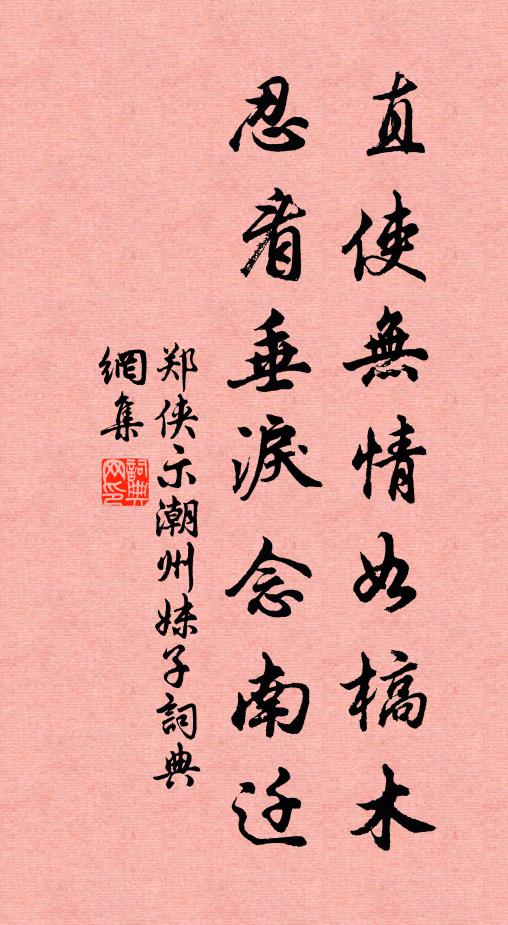 直使無情如槁木
忍看垂淚念南迁
郑侠示潮州妹子詞典
網集
詞典
网印